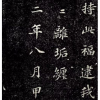 持此福逮我
二離垢纏
二年八月甲